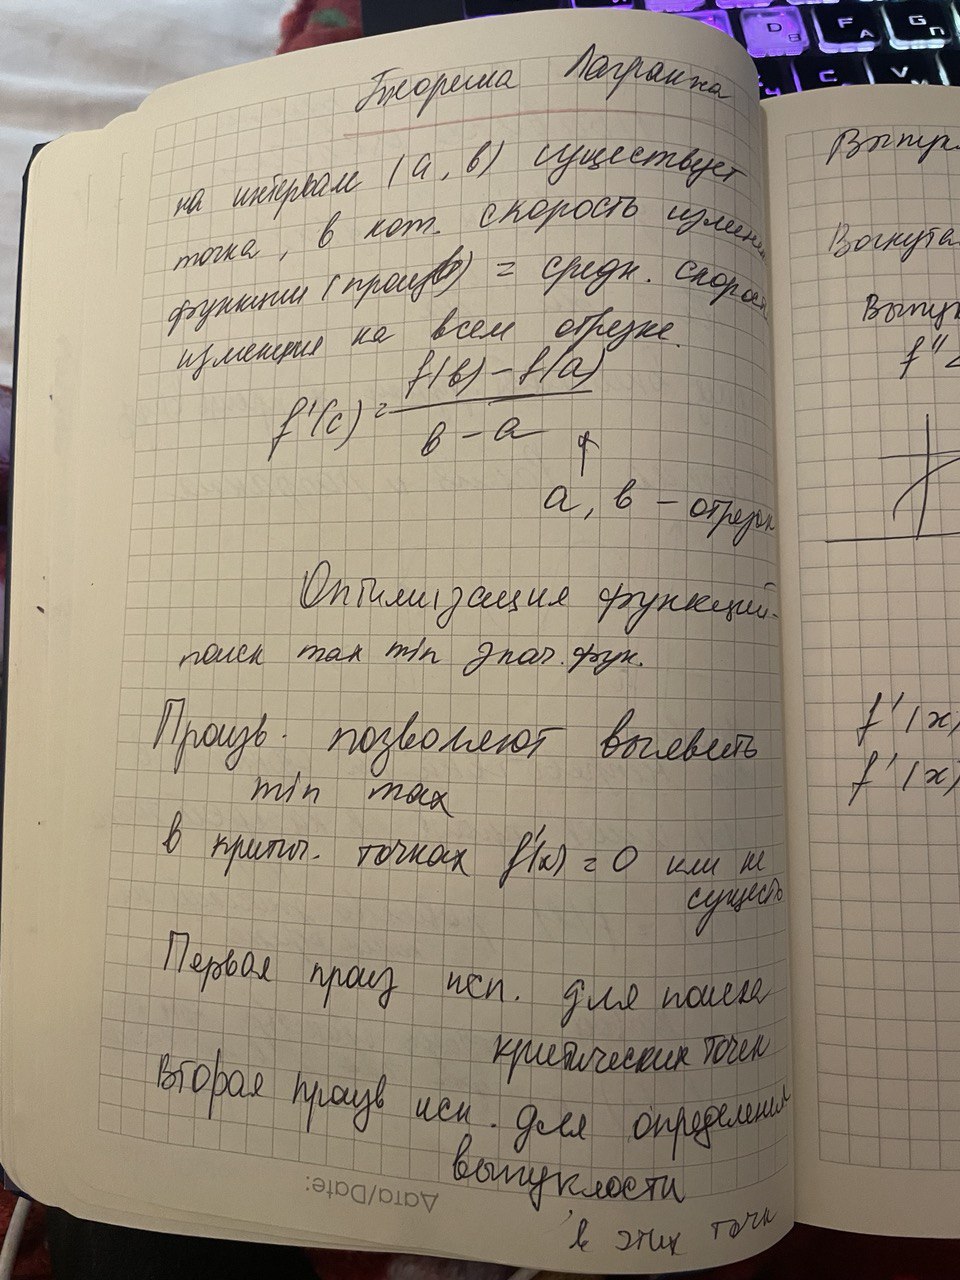 Теорема Лагранжа
на интервале (a, b) существует
точка, в кот. скорость измен
функции (произв) = средн. скорос
изменения на всем отрезке.
f'(c) = f(b) - f(a)
b - a
a, b - отрезок
Оптимизация функций-
поиск max min знач. фун.
Произв. позволяют выявить
min max
в критич. точках f'(x) = 0 или не
существ
Первая произ исп. для поиска
критических точек
Вторая произв исп. для определения
выпуклости
в этих точк
Дата/Date:
Выпук
Вогнута
Выпук
f''<
f'(x)
f'(x)